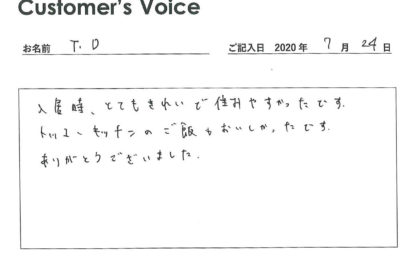 Customer's Voice
お名前 T.D ご記入日 2020 年 7 月 24 日
入居時、とてもきれいで住みやすかったです.
トッコーキッチンのご飯もおいしかったです.
ありがとうございました.